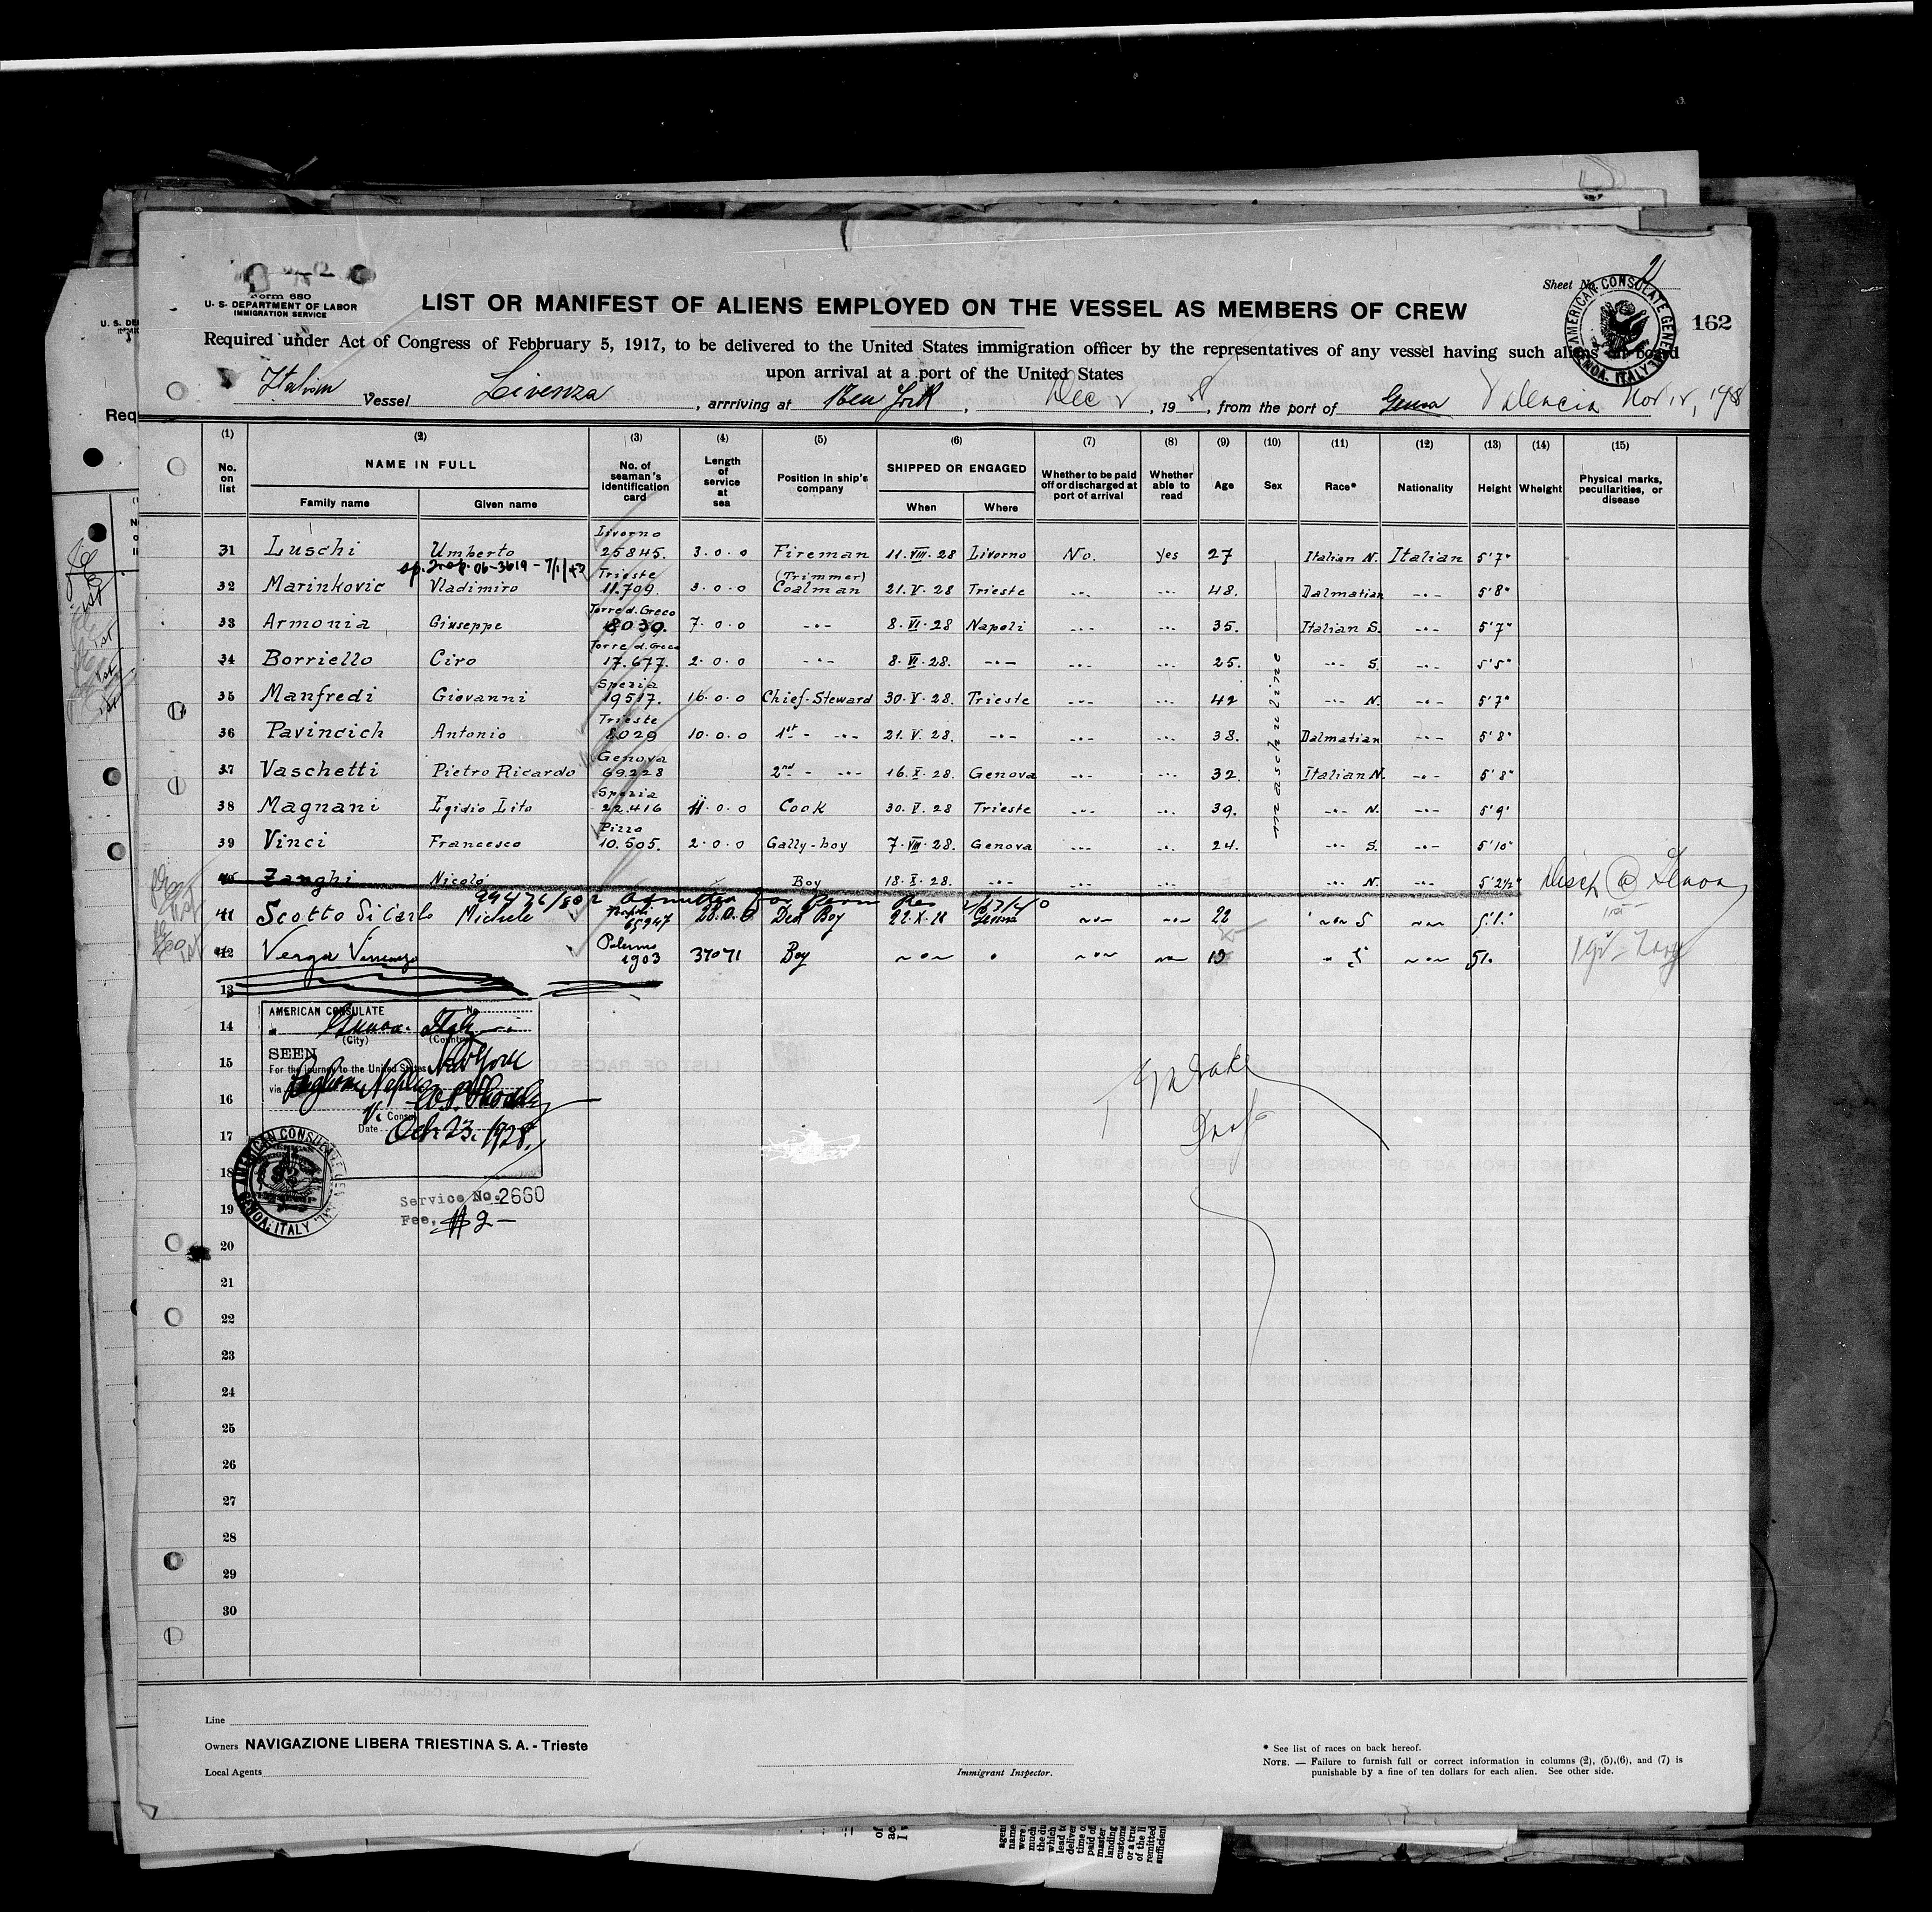 Form 680
U. S. DEPARTMENT OF LABOR
IMMIGRATION SERVICE
LIST OR MANIFEST OF ALIENS EMPLOYED ON THE VESSEL AS MEMBERS OF CREW
Sheet No. 2
AMERICAN CONSULATE GENERAL GENOA. ITALY
162
Required under Act of Congress of Febbruary 5, 1917, to be delivered to the United States immigration officer by the representatives of any vessel having such aliens on board
upon arrival at a port of the United States
Italian Vessel Livenza, arrriving at New York, Dec 2, 1928, from the port of Genoa Valencia Nov 12, 1928
(1) (2) (3) (4) (5) (6) (7) (8) (9) (10) (11) (12) (13) (14) (15)
No. on list NAME IN FULL Family name Given name No. of seaman's identification card Length of service at sea Position in ship's company SHIPPED OR ENGAGED When Where Whether to be paid off or discharged at port of arrival Whether able to read Age Sex Race* Nationality Height Wheight Physical marks, peculiarities, or disease
31 Luschi Umberto Livorno 25845. 3.0.0 Fireman 11.VIII.28 Livorno No. Yes 27 Italian N. Italian 5'7"
sp. 06-3619 -
32 Marinkovic Vladimiro Trieste 11.709. 3.0.0 (Trimmer) Coalman 21.V.28 Trieste -.- -.- 48. Dalmatian -.- 5'8"
33 Armonia Giuseppe Torre d. Greco 8030. 7.0.0 -.- 8.VI.28 Napoli -.- -.- 35. Italian S. -.- 5'7"
34 Borriello Ciro Torre d. Greco 17.677. 2.0.0 -.- 8.VI.28. -.- -.- -.- 25. -.- S. -.- 5'5"
35 Manfredi Giovanni Spezia 19517. 16.0.0 Chief-Steward 30.V.28. Trieste -.- -.- 42 -.- N. -.- 5'7"
36 Pavincich Antonio Trieste 8029 10.0.0 1st - -.- 21.V.28. -.- -.- -.- 38. Dalmatian -.- 5'8"
37 Vaschetti Pietro Ricardo Genova 69228 2nd - -.- 16.X.28. Genova -.- -.- 32. Italian N. -.- 5'8"
38 Magnani Egidio Lito Spezia 22.416 11.0.0 Cook 30.V.28 Trieste -.- -.- 39. -.- N. -.- 5'9"
39 Vinci Francesco Pizzo 10.505. 2.0.0 Gally-boy 7.VIII.28. Genova -.- -.- 24. -.- S. -.- 5'10"
maschuline
40 Zanghi Nicoló Boy 18.X.28. -.- -.- -.- -.- N. -.- 5'2½" Disch @ Genoa
Admitted for Perm Res
41 Scotto Di Carlo Michele Napoli 65947 28.0.0 Deck Boy 22.X.28 Genoa -.- -.- 22 -.- S -.- 5'1"
42 Verga Vincenzo Palermo 1903 37071 Boy -.- -.- -.- -.- 51.
13
14
15
16
17
18
19
20
21
22
23
24
25
26
27
28
29
30
AMERICAN CONSULATE No.
Genoa. Italy
(City) (Country)
SEEN
For the journey to the United States New York
via Naples
V. Consul
Date Oct. 23, 1928.
AMERICAN CONSULATE GENERAL GENOA. ITALY
Service No. 2660
Fee, $2-
Line
Owners NAVIGAZIONE LIBERA TRIESTINA S. A. - Trieste
Local Agents
Immigrant Inspector.
* See list of races on back hereof.
NOTE. — Failure to furnish full or correct information in columns (2), (5),(6), and (7) is
punishable by a fine of ten dollars for each alien. See other side.